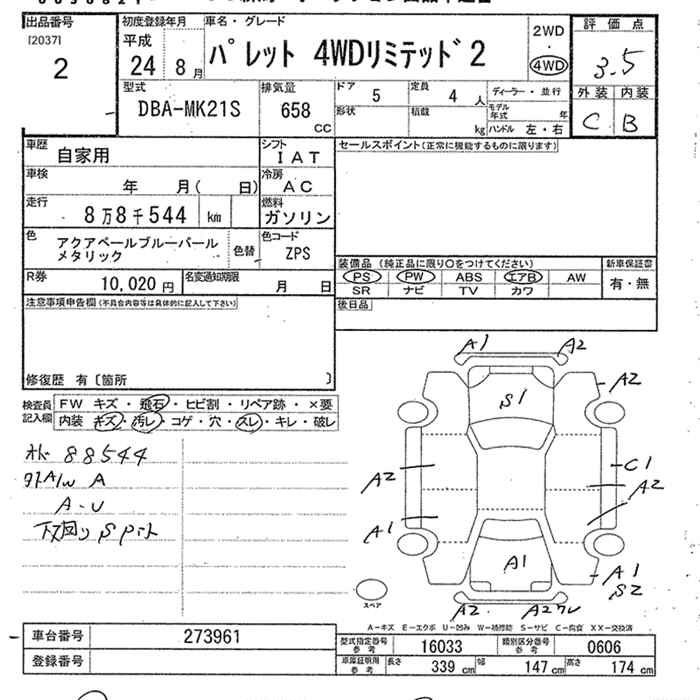 出品番号
[2037]
2
初度登録年月
平成
24 8月
車名・グレード
パレット 4WDリミテッド2
2WD
・
4WD
評価点
3.5
外装 内装
C B
型式
DBA-MK21S
排気量
658
CC
ドア 5
定員 4 人
形状
積載 kg
ディーラー・並行
モデル年式 年
ハンドル 左・右
車歴
自家用
シフト
IAT
車検
年 月( 日)
冷房
AC
走行
8万8千544 km
燃料
ガソリン
色
アクアペールブルーパール
メタリック
色替
色コード
ZPS
R券
10,020円
名変通知期限
月 日
セールスポイント(正常に機能するものに限ります)
装備品(純正品に限り○をつけてください)
PS PW ABS エアB AW
SR ナビ TV カワ
新車保証書
有・無
後日品
注意事項申告欄(不具合内容等は具体的に記入して下さい)
修復歴 有〔箇所 〕
検査員
記入欄
FW キズ・飛石・ヒビ割・リペア跡・×要
内装 キズ・汚レ・コゲ・穴・スレ・キレ・破レ
88544
A
A-U
下回り S
A1 A2
A2
S1
A2
C1
A2
A1
A1
A1
S2
A2
A2
スペア
A-キズ E-エクボ U-凹み W-補修跡 S-サビ C-腐食 XX-交換済
車台番号
273961
登録番号
型式指定番号
参考
16033
類別区分番号
参考
0606
車庫証明用
参考
長さ 339 cm
幅 147 cm
高さ 174 cm